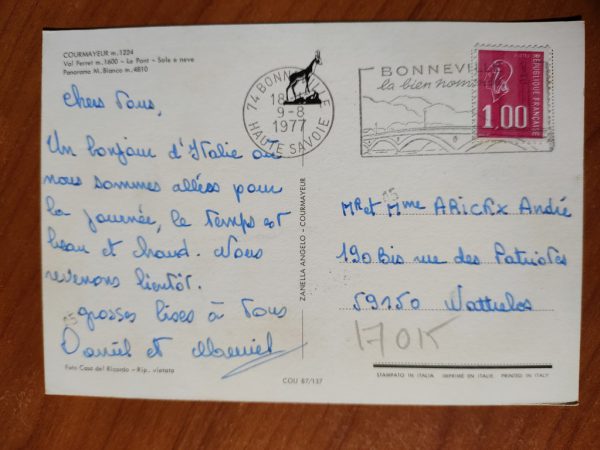 COURMAYEUR m. 1224
Val Ferret m. 1600 - Le Pont - Sole e neve
Panorama M. Bianco m. 4810
Chers Tous,
Un bonjour d'Italie où
nous sommes allées pour
la journée, le temps est
beau et chaud. Nous
revenons bientôt.
grosses bises à Tous
Daniel et
Foto Casa del Ricordo - Rip. vietata
ZANELLA ANGELO - COURMAYEUR
COU 87/137
74 BONNEVILLE
18
9-8
1977
HAUTE SAVOIE
BONNEVI
la bien nom
REPUBLIQUE FRANÇAISE
1,00
Mr et Mme ARICKX André
190 Bis rue des Patriotes
59150 Wattrelos
170K
STAMPATO IN ITALIA IMPRIMÉ EN ITALIE PRINTED IN ITALY